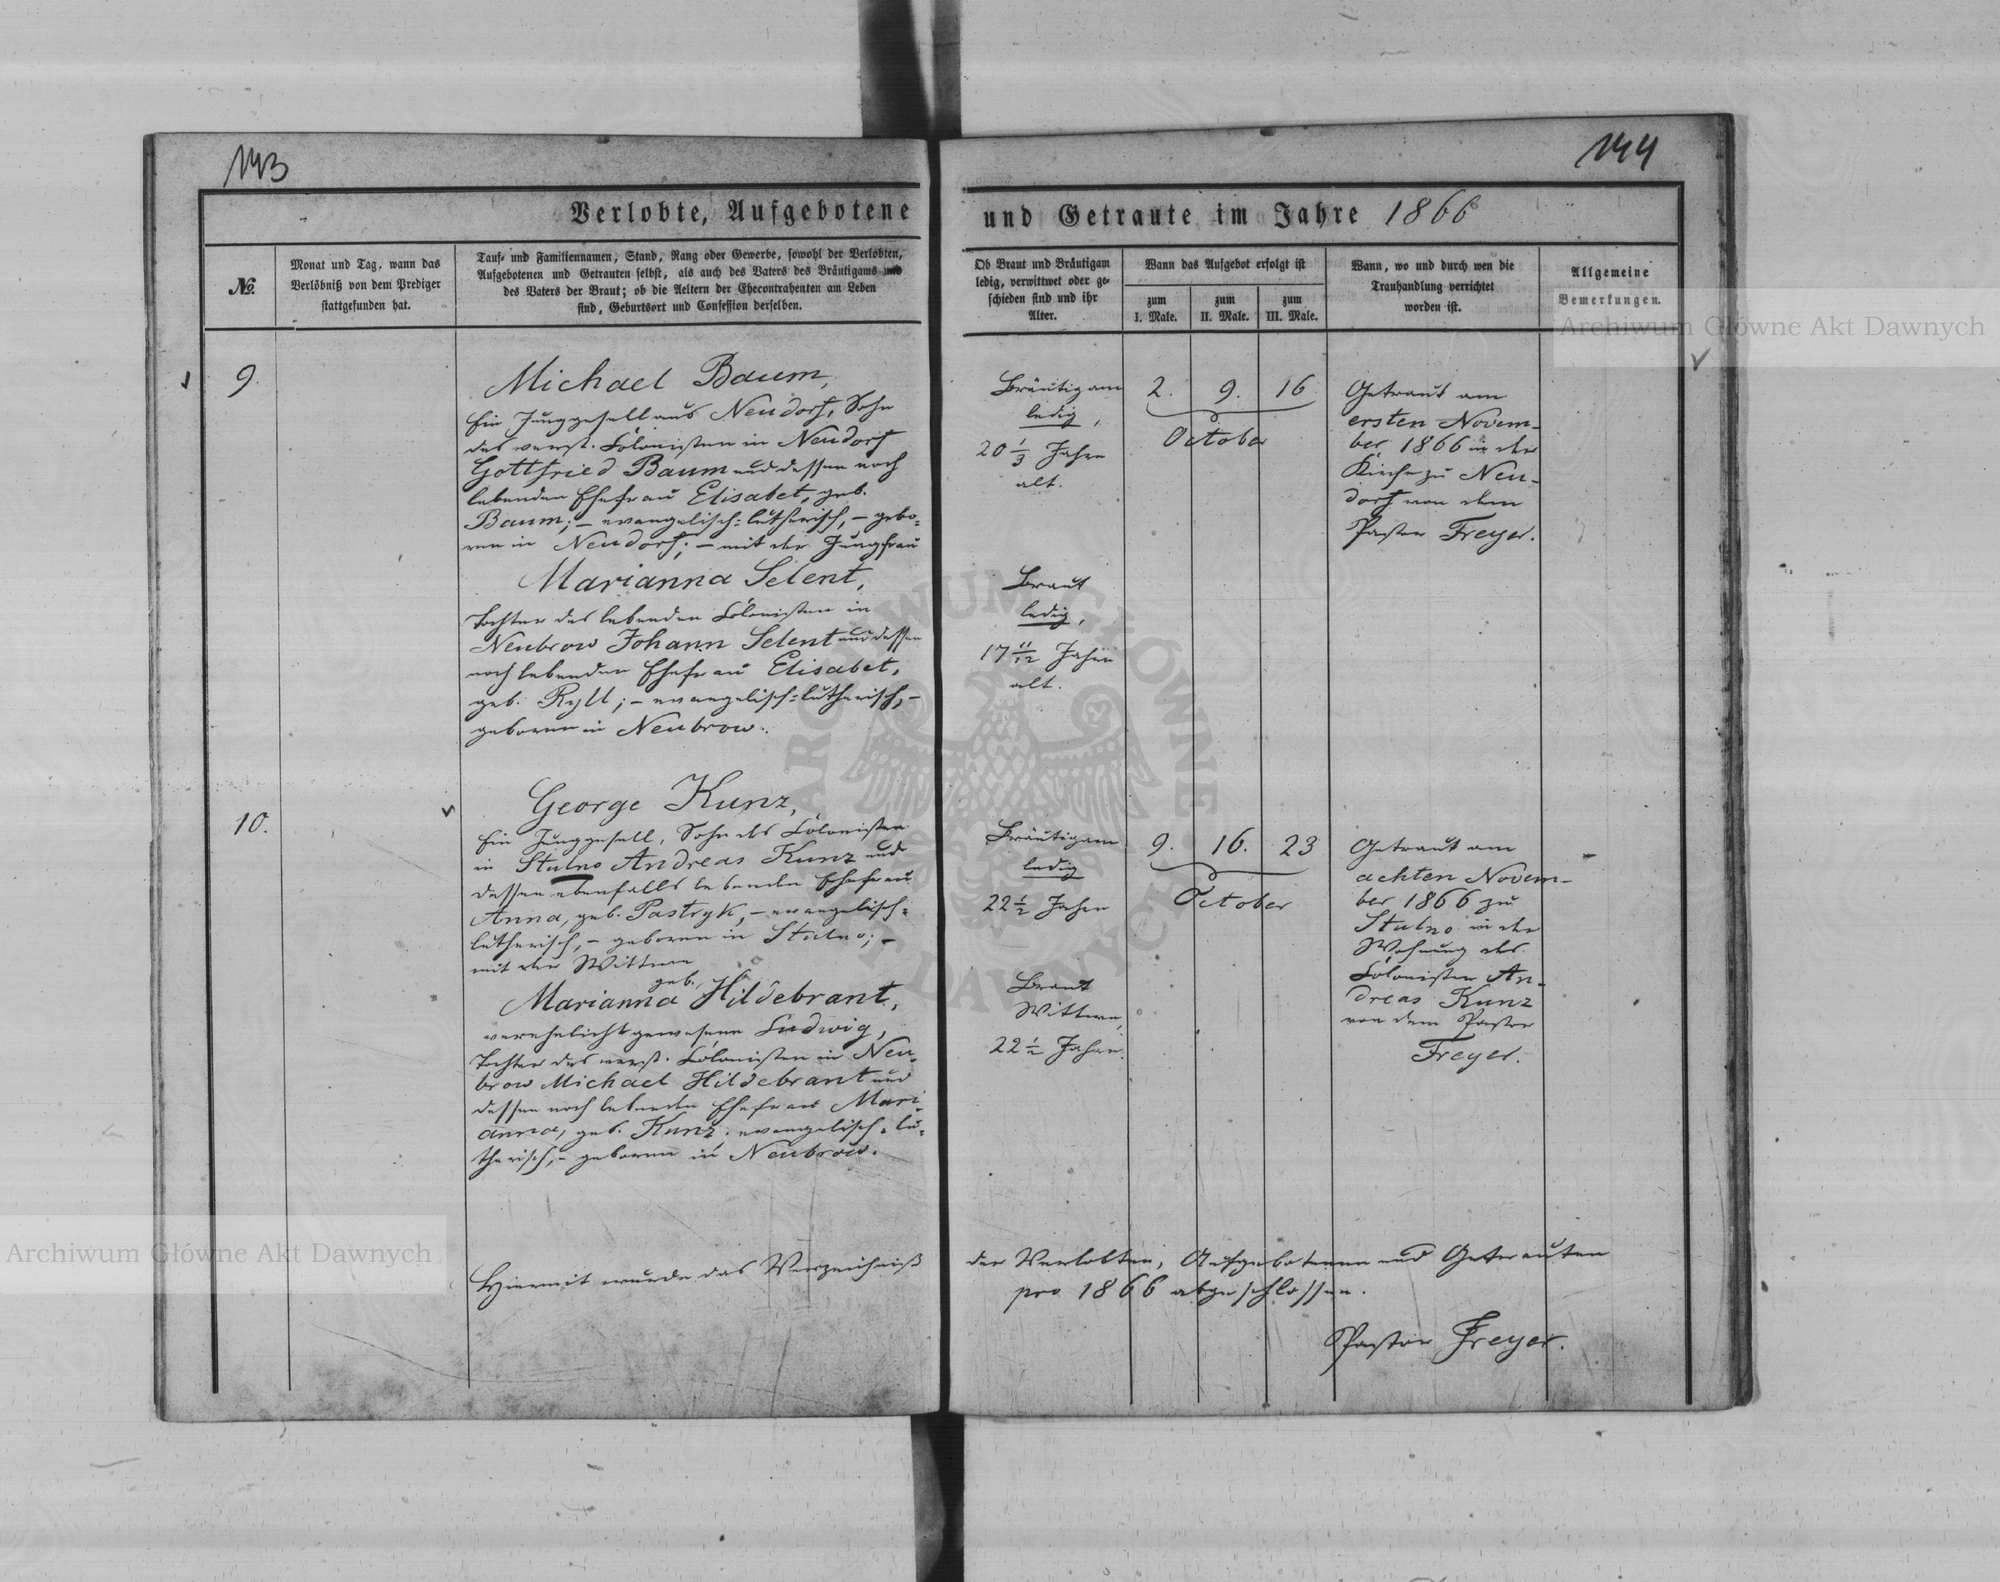 143
144
Verlobte, Aufgebotene und Getraute im Jahre 1866
No.
Monat und Tag, wann das
Verlöbniß von dem Prediger
stattgefunden hat.
Tauf- und Familiennamen, Stand, Rang oder Gewerbe, sowohl der Verlobten,
Aufgebotenen und Getrauten selbst, als auch des Vaters des Bräutigams und
des Vaters der Braut; ob die Aeltern der Ehecontrahenten am Leben
sind, Geburtsort und Confession derselben.
Ob Braut und Bräutigam
ledig, verwittwet oder ge-
schieden sind und ihr
Alter.
Wann das Aufgebot erfolgt ist
zum
I. Male.
zum
II. Male.
zum
III. Male.
Wann, wo und durch wen die
Trauhandlung verrichtet
worden ist.
Allgemeine
Bemerkungen.
9.
Michael Baum,
Ein Junggesell aus Neudorf, Sohn
des verst. Colonisten in Neudorf
Gottfried Baum und dessen noch
lebenden Ehefrau Elisabet, geb.
Baum; – evangelisch-lutherisch, – gebo-
ren in Neudorf; – mit der Jungfrau
Marianna Selent,
Tochter des lebenden Colonisten in
Neubrow Johann Selent und dessen
noch lebenden Ehefrau Elisabet,
geb. Ryll; – evangelisch-lutherisch, –
geboren in Neubrow.
Bräutigam
ledig,
20 1/3 Jahre
alt.
Braut
ledig,
17 11/12 Jahre
alt.
2. 9. 16.
October
Getraut am
ersten Novem-
ber 1866 in der
Kirche zu Neu-
dorf von dem
Pastor Freyer.
10.
George Kunz,
Ein Junggesell, Sohn des Colonisten
in Stulno Andreas Kunz und
dessen ebenfalls lebenden Ehefrau
Anna, geb. Pastryk, – evangelisch-
lutherisch, – geboren in Stulno; –
mit der Wittwe
geb.
Marianna Hildebrant,
verehelicht gewesene Ludwig,
Tochter des verst. Colonisten in Neu-
brow Michael Hildebrant und
dessen noch lebenden Ehefrau Mari-
anna, geb. Kunz. evangelisch-lu-
therisch, – geboren in Neubrow.
Bräutigam
ledig
22 1/2 Jahre
Braut
Wittwe,
22 1/2 Jahre.
9. 16. 23
October
Getraut am
achten Novem-
ber 1866 zu
Stulno in der
Wohnung des
Colonisten An-
dreas Kunz
von dem Pastor
Freyer.
Hiermit wurde das Verzeichniß der Verlobten, Aufgebotenen und Getrauten
pro 1866 abgeschlossen.
Pastor Freyer.
Archiwum Główne Akt Dawnych
Archiwum Główne Akt Dawnych
ARCHIWUM GŁÓWNE AKT DAWNYCH